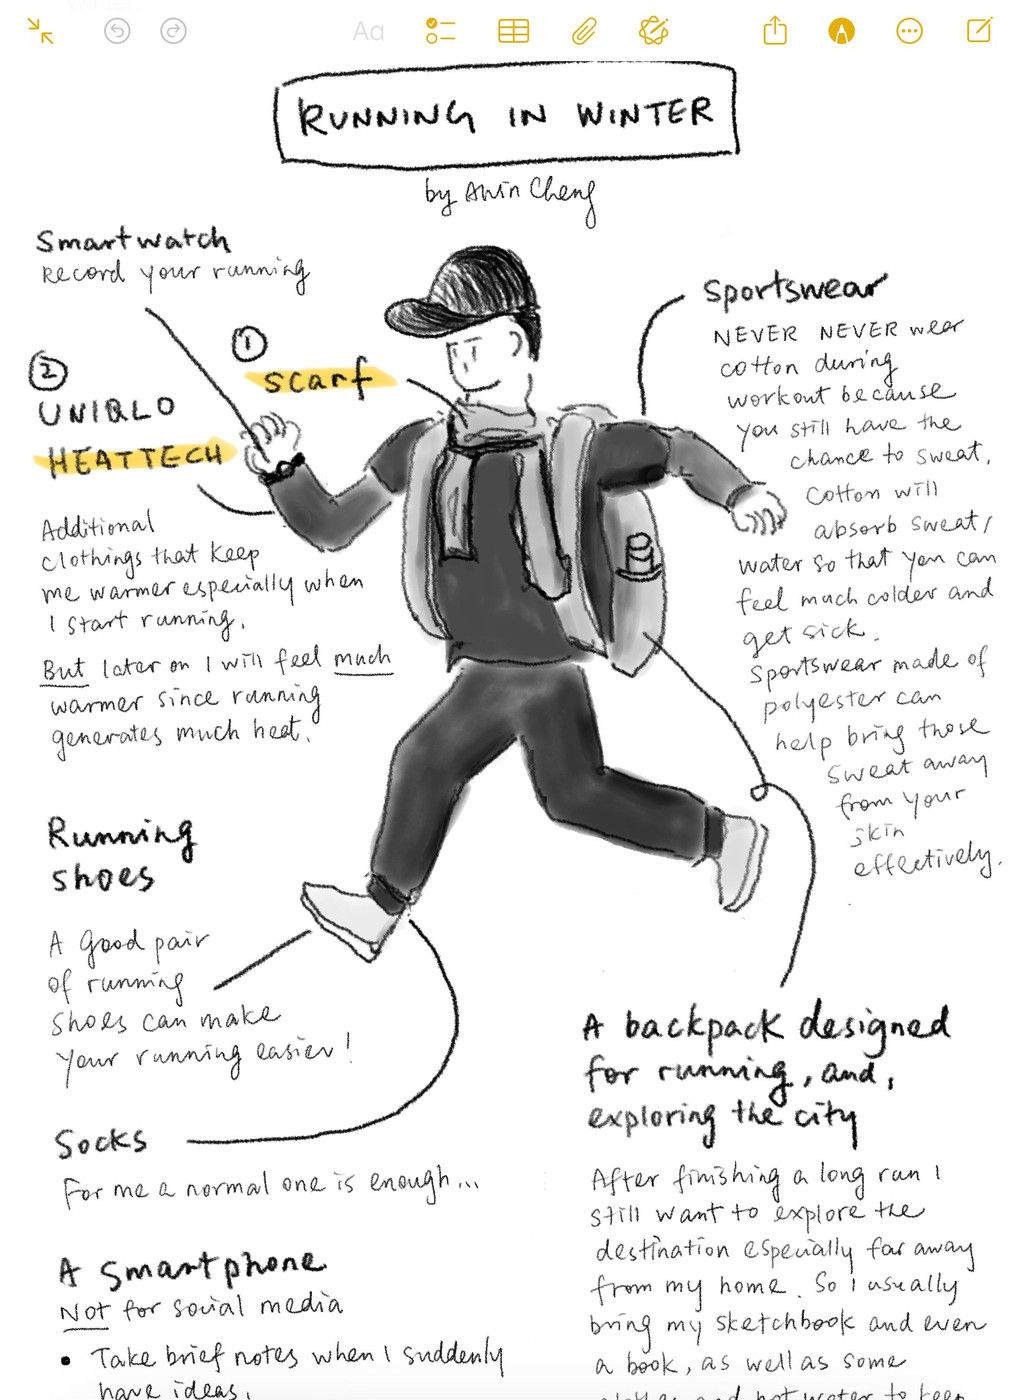 Aa
RUNNING IN WINTER
by Awin Cheng
Smartwatch
Record your running
①
scarf
②
UNIQLO
HEATTECH
Additional
clothings that keep
me warmer especially when
I start running.
But later on I will feel much
warmer since running
generates much heat.
Sportswear
NEVER NEVER wear
cotton during
workout because
you still have the
chance to sweat.
Cotton will
absorb sweat/
water so that you can
feel much colder and
get sick.
Sportswear made of
polyester can
help bring those
sweat away
from your
skin
effectively.
Running
shoes
A good pair
of running
shoes can make
your running easier!
Socks
For me a normal one is enough...
A smartphone
NOT for social media
• Take brief notes when I suddenly
have ideas.
A backpack designed
for running, and,
exploring the city
After finishing a long run I
still want to explore the
destination especially far away
from my home. So I usually
bring my sketchbook and even
a book, as well as some
and hot water to keep